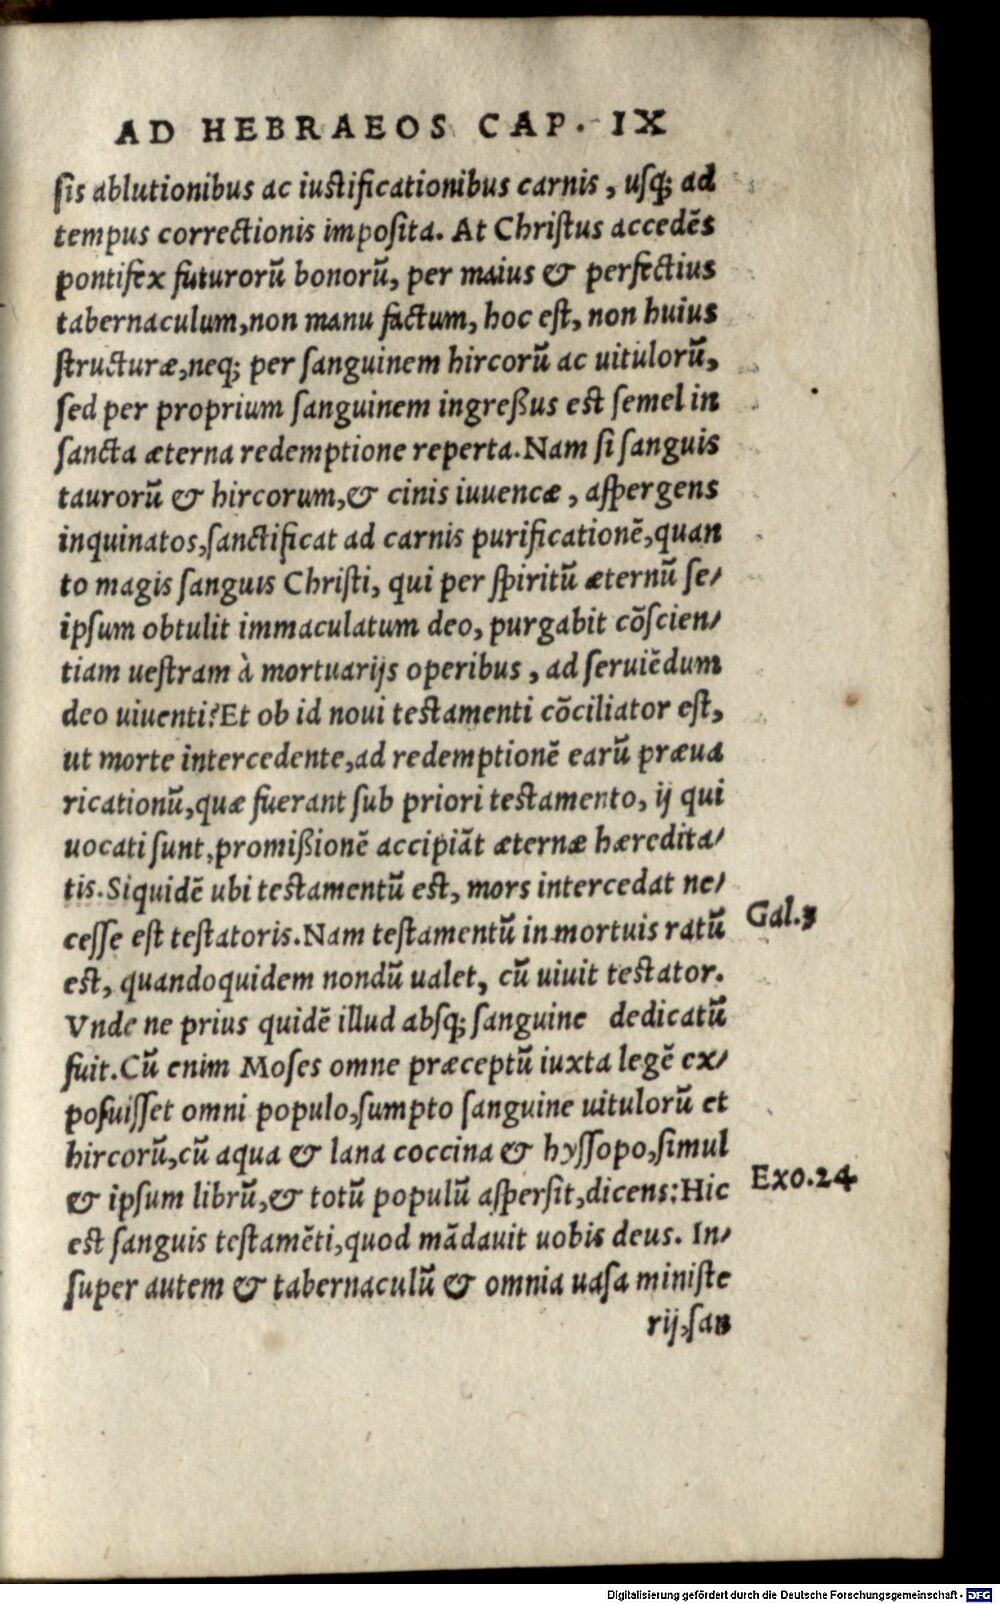 AD HEBRAEOS CAP. IX
sis ablutionibus ac iustificationibus carnis, usq; ad
tempus correctionis imposita. At Christus accedẽs
pontifex futurorũ bonorũ, per maius & perfectius
tabernaculum, non manu factum, hoc est, non huius
structuræ, neq; per sanguinem hircorũ ac uitulorũ,
sed per proprium sanguinem ingreßus est semel in
sancta æterna redemptione reperta. Nam si sanguis
taurorũ & hircorum, & cinis iuuencæ, aspergens
inquinatos, sanctificat ad carnis purificationẽ, quan
to magis sanguis Christi, qui per spiritũ æternũ se/
ipsum obtulit immaculatum deo, purgabit cõscien/
tiam uestram à mortuarijs operibus, ad seruiẽdum
deo uiuenti? Et ob id noui testamenti cõciliator est,
ut morte intercedente, ad redemptionẽ earũ præua
ricationũ, quæ fuerant sub priori testamento, ij qui
uocati sunt, promißionẽ accipiãt æternæ hæredita/
tis. Siquidẽ ubi testamentũ est, mors intercedat ne/
cesse est testatoris. Nam testamentũ in mortuis ratũ
Gal.3
est, quandoquidem nondũ ualet, cũ uiuit testator.
Vnde ne prius quidẽ illud absq; sanguine dedicatũ
fuit. Cũ enim Moses omne præceptũ iuxta legẽ ex/
posuisset omni populo, sumpto sanguine uitulorũ et
hircorũ, cũ aqua & lana coccina & hyssopo, simul
& ipsum librũ, & totũ populũ aspersit, dicens: Hic
Exo.24
est sanguis testamẽti, quod mãdauit uobis deus. In/
super autem & tabernaculũ & omnia uasa ministe
rij, san
Digitalisierung gefördert durch die Deutsche Forschungsgemeinschaft - DFG